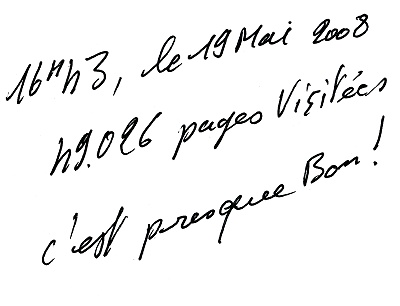 16H43, le 19 Mai 2008
49.026 pages Visitées
c'est presque Bon!